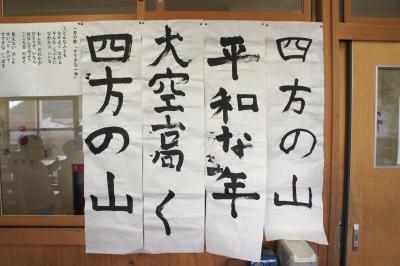 四方の山
平和な年
大空高く
四方の山